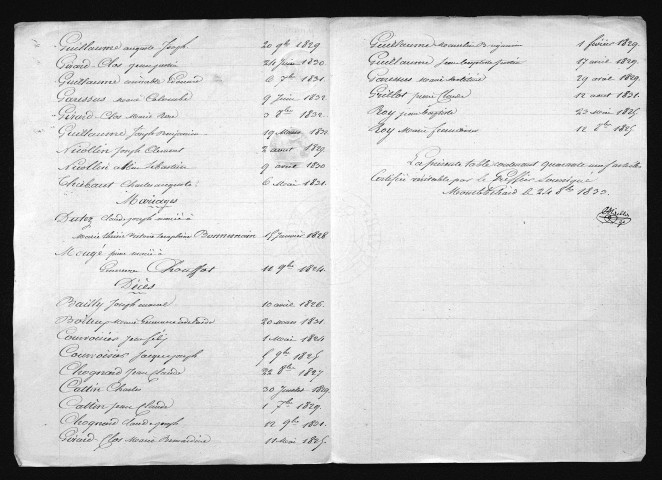 Guillaume auguste Joseph 20 9bre 1829
Girard-Clos jeanjustin 24 Juin 1830
Guillaume Edouard 6 7bre 1831
Garessus marie Colombe 9 Juin 1832
Girard-Clos Marie Rose 3 8bre 1832
Guillaume Joseph Benjamin 19 Mars 1831
Nicollin Joseph Clement 2 aout 1829
Nicollin Sébastien 9 avril 1830
Thiebaut Charles auguste 6 Mai 1831
Mariages
Dutez Claude joseph marié à
Marie 15 janvier 1828
Mougé pierre marié à
Chouffot 11 9bre 1824
Décès
Bailly Joseph 10 avril 1826
Marie 20 Mars 1831
Courvoisier jean 1 Mai 1824
Courvoisier Jacque joseph 5 9bre 1825
Chognard jean Claude 22 8bre 1827
Cattin Charles 30 Juillet 1829
Cattin jean Claude 1 7bre 1829
Chognard Claude joseph 12 9bre 1831
Girard-Clos Marie Bernardine 11 Mai 1825
Guillaume 1 février 1829
Guillaume justin 17 avril 1829
Garessus Marie 29 avril 1829
Grillot pierre Claude 12 aout 1831
Roy jean baptiste 23 Mai 1825
Roy Marie 12 8bre 1825
La présente table contenant quarante un
Certifiée véritable par le Greffier Soussigné
le 24 8bre 1833